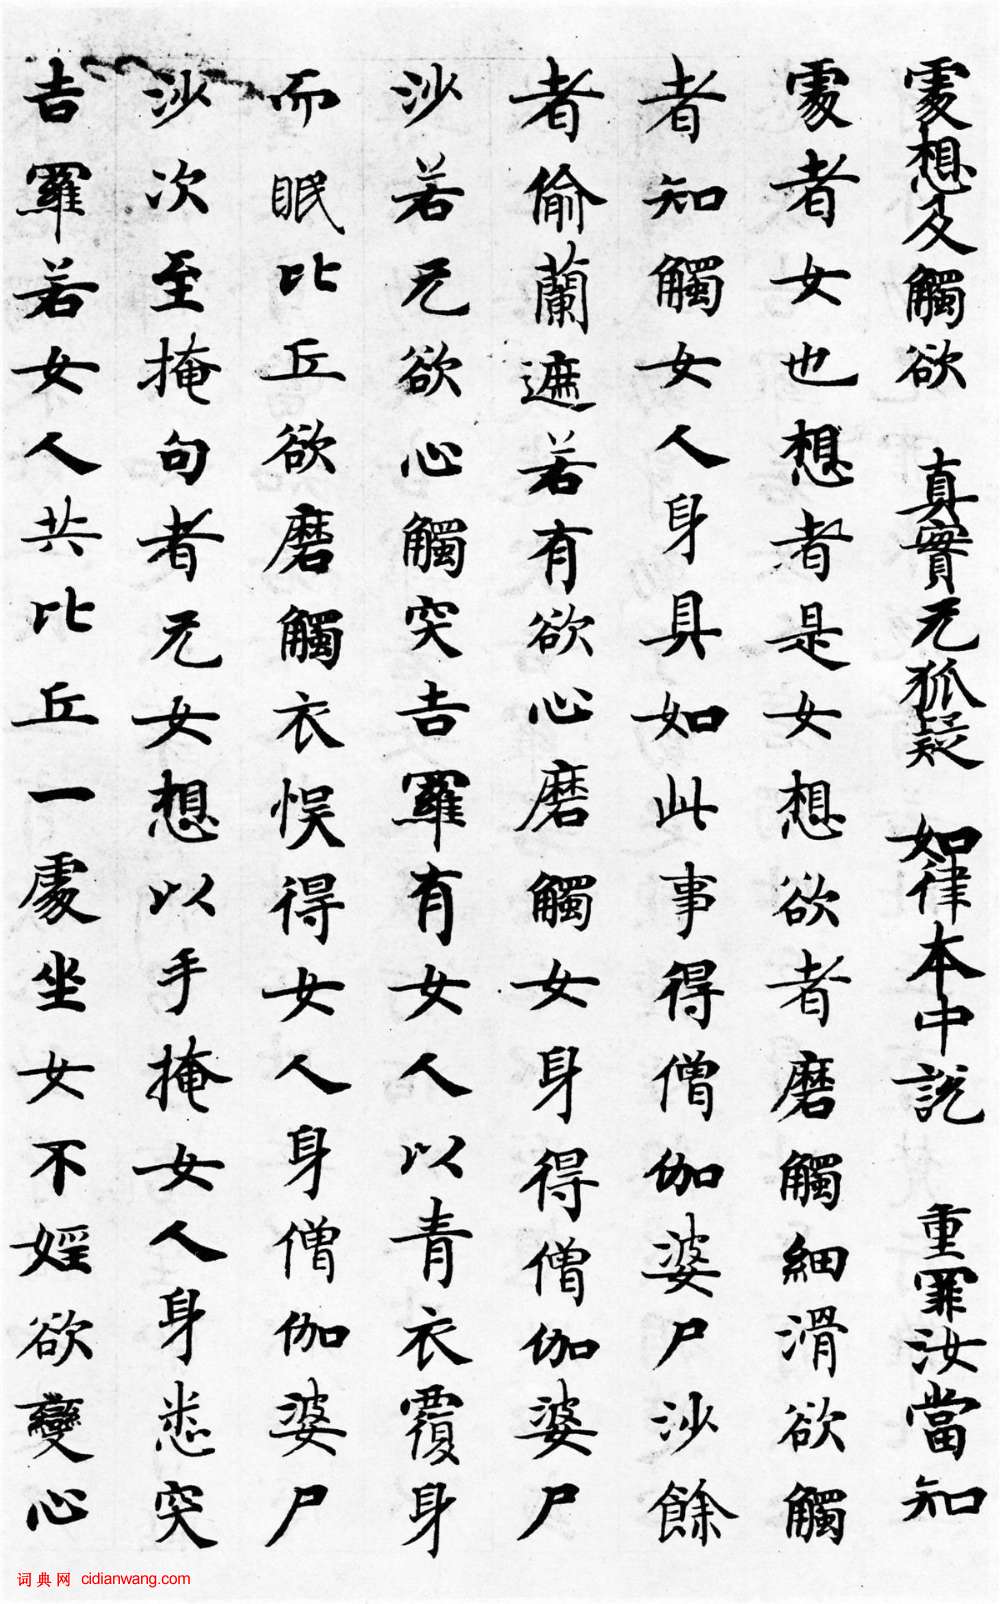 處想及觸欲　真實无狐疑　如律本中說　重罪汝當知
處者女也想者是女想欲者磨觸細滑欲觸
者知觸女人身具如此事得僧伽婆尸沙餘
者偷蘭遮若有欲心磨觸女身得僧伽婆尸
沙若无欲心觸突吉羅有女人以青衣覆身
而眠比丘欲磨觸衣悮得女人身僧伽婆尸
沙次至掩句者无女想以手掩女人身悉突
吉羅若女人共比丘一處坐女不婬欲變心
词典网 cidianwang.com